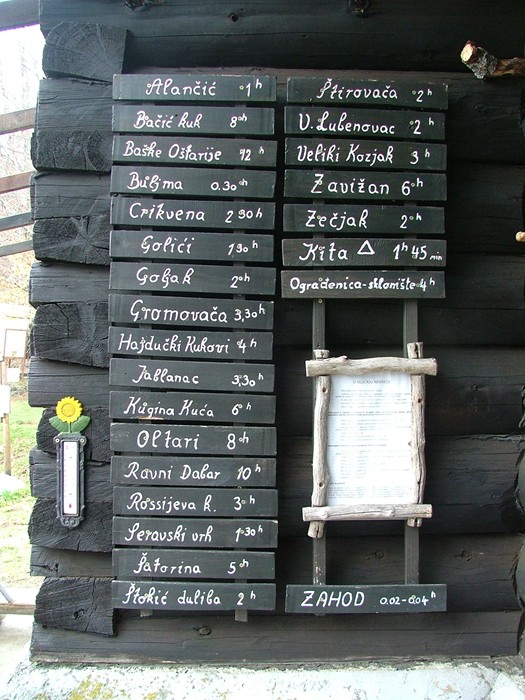 Alančić 1h
Bačić kuk 8h
Baške Oštarije 12h
Buljma 0.30h
Crikvena 2 30h
Golići 1 30h
Goljak 2h
Gromovača 3,30h
Hajdučki Kukovi 4h
Jablanac 3,30h
Kugina Kuća 6h
Oltari 8h
Ravni Dabar 10h
Rossijeva k. 3h
Seravski vrh 1 30h
Šatorina 5h
Štokić duliba 2h
Štirovača 2h
V. Lubenovac 2h
Veliki Kozjak 3h
Zavižan 6h
Zečjak 2h
Kita △ 1h 45 min
Ograđenica-sklonište 4h
ZAHOD 0.02-0.04h